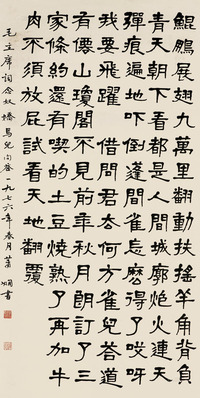 鯤鵬展翅九萬里翻動扶搖羊角背負
青天朝下看都是人間城郭炮火連天
彈痕遍地吓倒蓬間雀怎麽得了哎呀
我要飛躍借問君去何方雀兒答道
有僊山瓊閣不見前年秋月朗訂了三
家條約還有喫的土豆燒熟了再加牛
肉不須放屁試看天地翻覆
毛主席詞念奴嬌鳥兒問答一九七六年春月蕭嫻書